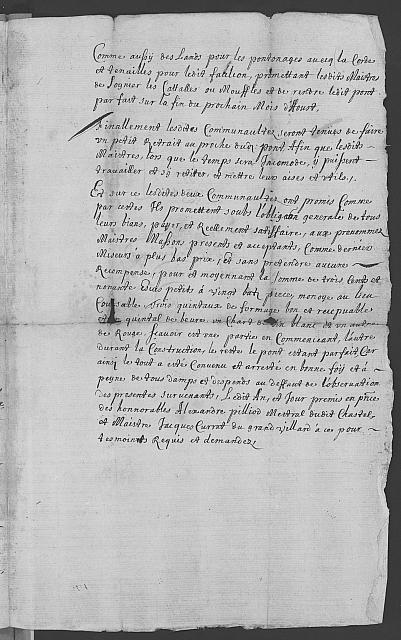 Comme aussy des Lards pour les pontonages avecq la Corde
et tenailles pour ledit fallion, promettant lesdits Maistres
de soigner les Cattalles ou Mouffles et de rendre ledit pont
parfait sur la fin du prochain Mois d'Aoust.
Finallement lesdites Communaultez seront tenues de faire
un petit Retrait au proche dudit pont Afin que lesdits
Maistres, lors que le temps sera Incomode, y puissent
travailler et se retirer, et mettre leurs aises et utils.
Et sur ce lesdites deux Communaultez ont promis Comme
par cestes Ils promettent soubs lobligaon generale de tous
leurs biens, payer, et Reellement satisfaire, aux prenommez
Maistres Masson presents et acceptants, Comme derniers
Miseurs a plus bas prix, et sans pretendre aucune
Recompense, pour et moyennant la somme de trois Cents et
nonante escus petits a vingt batz piece, monoye au lieu
Coursable, trois quintaux de formage bon et recepvable
quintal de beure un Chart de vin blanc et un autre
de Rouge, scavoir est une partie en Commenceant, l'autre
durant la Construction, le reste le pont estant parfait Car
ainsy le tout a esté Convenu et arresté en bonne foy et a
peyne de tous damps et despends au deffaut de lobservation
des presentes survenants, Ledit An, et Jour premis en pnce
des honnorables Alexandre pilliod Mestral dudit Chastel
et Maistre Jacques Currat du grand villard a ce pour
tesmoints Requis et demandez